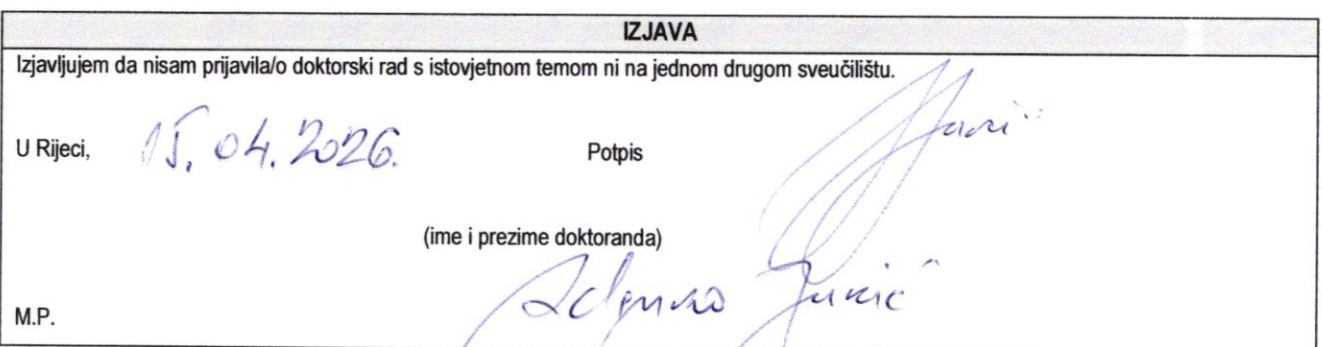 IZJAVA
Izjavljujem da nisam prijavila/o doktorski rad s istovjetnom temom ni na jednom drugom sveučilištu.
U Rijeci, 15.04.2026. Potpis
(ime i prezime doktoranda)
M.P.